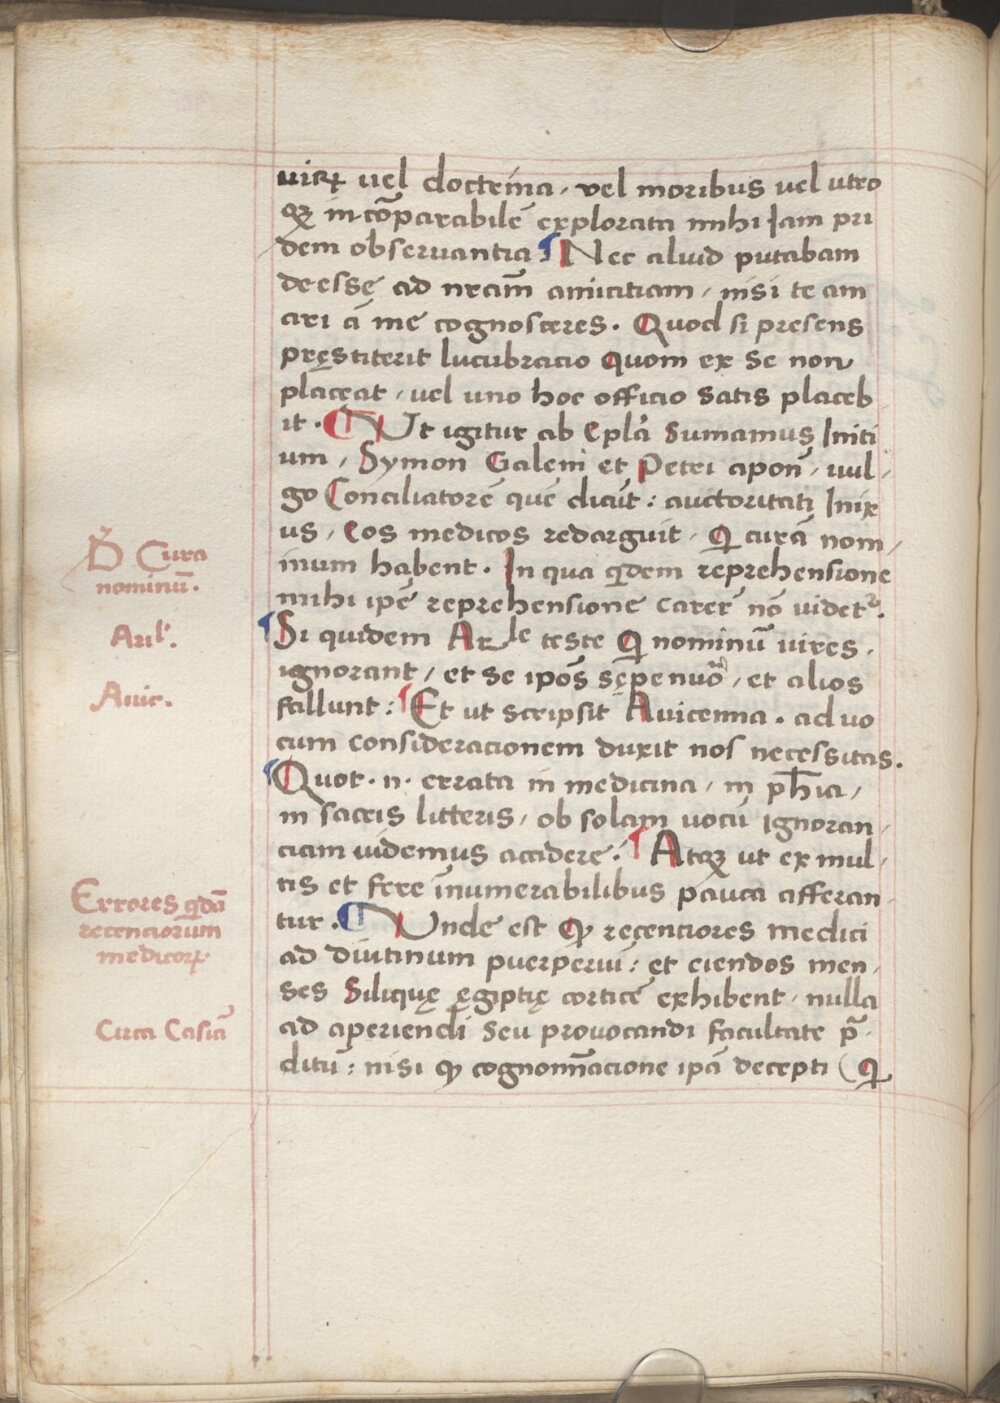 uirꝝ uel doctrina, vel moribus uel utro
qꝫ incōparabilē explorata mihi Iam pri
dem obseruantia ¶ Nec aliud putabam
deesse ad nr̄am amicitiam, nisi te am
ari á me cognosceres. Quod si presens
pręstiterit lucubracio Quom ex se non
placeat, uel uno hoc officio satis placeb
it. ¶ Ut igitur ab Epl̄a Sumamus Initi
um, Symon Galeni et Petri apon̄, uul
go Conciliatorē quē dicūt: auctoritati Inix
us, Eos medicos redarguit, Qͥ curā nom,
inum habent. In qua qͥdem reprehensione
mihi ipē reprehensione carer̄ nō uidetᷣ.
¶ Si quidem Arle teste Qͥ nominū uires,
ignorant, et se ipōs sępenuo, et alios
fallunt: ¶ Et ut scripsit Auicenna. ad uo
cum consideracionem duxit nos necessitas.
¶ Quot. n. errata in medicina, in ph̄ia,
in sacris litteris, ob solam uocū ignoran,
ciam uidemus accidere. ¶ Atqꝫ ut ex mul,
tis et fere īnumerabilibus pauca afferan
tur. ¶ Unde est ꝙ recenciores medici
ad diutinum puerperiū: et ciendos men,
ses Siliquę ęgiptię corticē exhibent, nulla
ad aperiendi seu prouocandi facultate p̄
ditū: nisi ꝙ cognoīacione ipā decepti (Qͥ
D̄ Cura
nominū.
Aril'.
Auic.
Errores qͦdā
recenciorum
medicoꝝ.
Circa Casiā